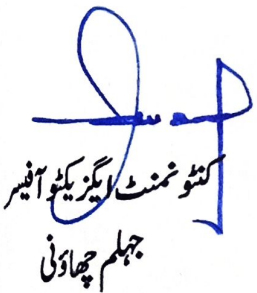 کنٹونمنٹ ایگزیکٹو آفیسر
جہلم چھاؤنی